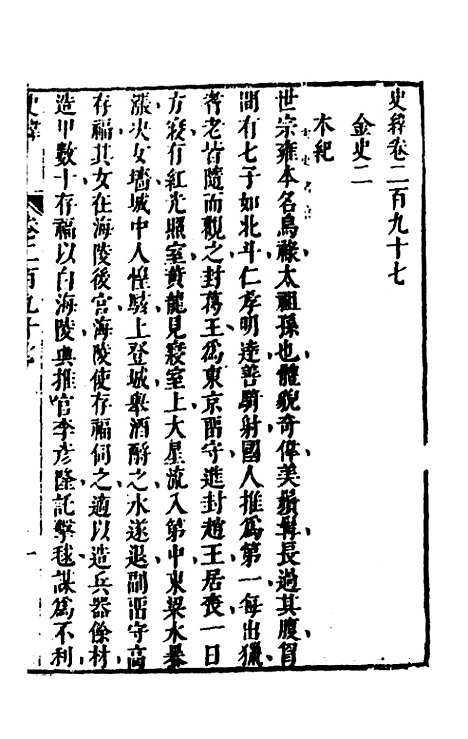 史緯卷二百九十七
金史二
本紀
世宗雍本名烏祿太祖孫也體貌奇偉美鬚髯長過其腹胷
間有七子如北斗仁孝明達善騎射國人推爲第一每出獵
耆老皆隨而觀之封葛王爲東京畱守進封趙王居喪一日
方寢有紅光照室黃龍見寢室上大星流入第中東梁水暴
漲決女墻城中人惶駭上登城舉酒酹之水遂退副畱守高
存福其女在海陵後宮海陵使存福伺之適以造兵器餘材
造甲數十存福以白海陵與推官李彥隆託擊毬謀爲不利
史緯 卷二百九十七 一